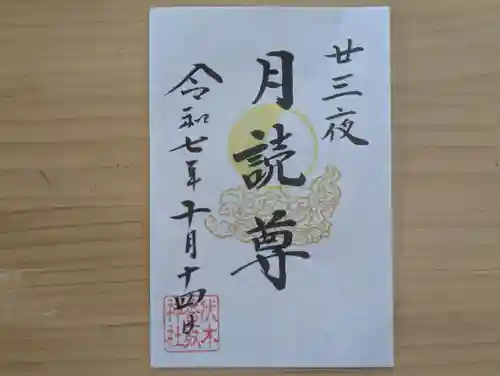 廿三夜
月読尊
令和七年十月十四日
伏木
神社